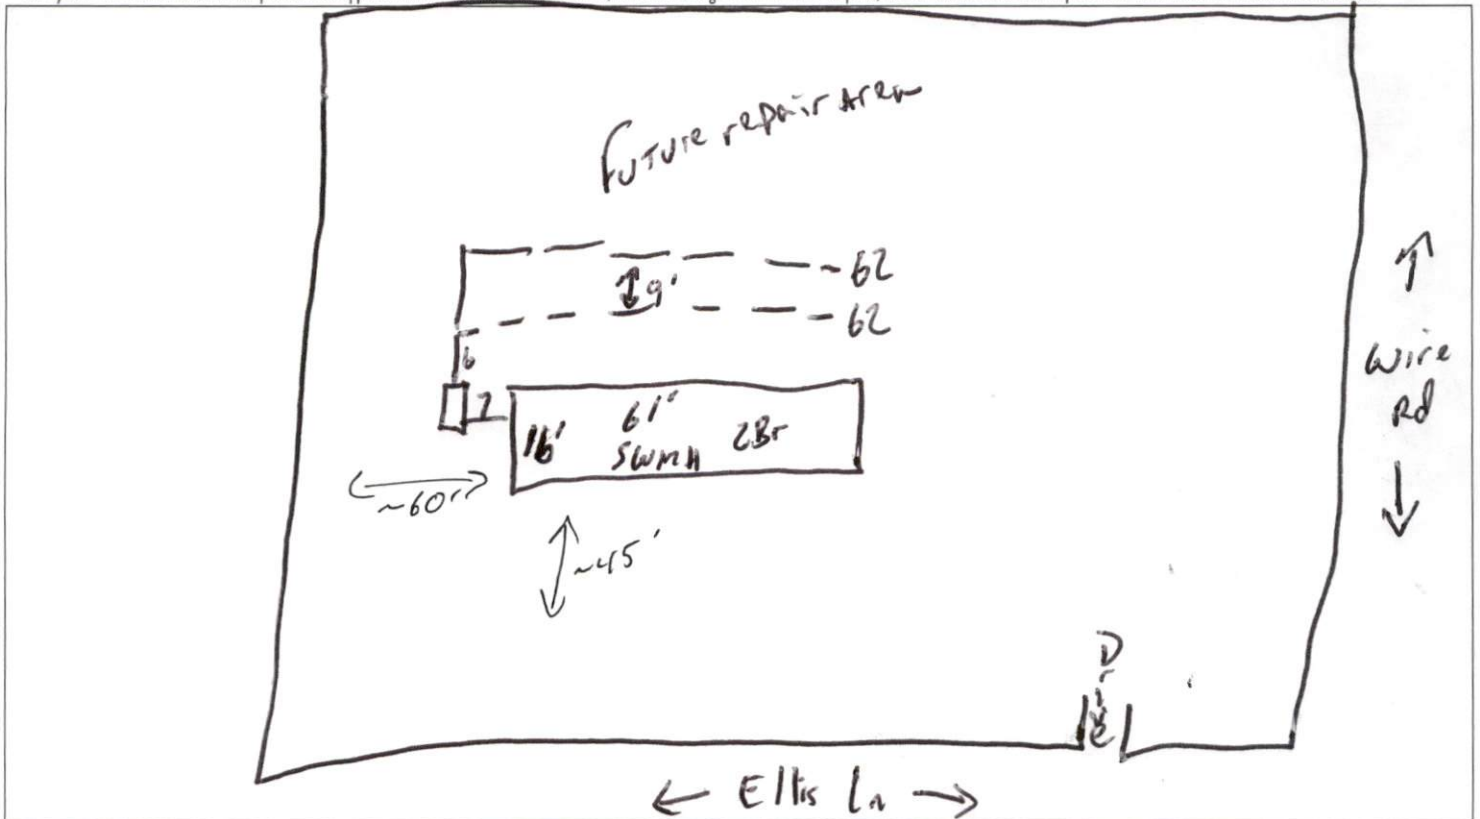 Future repair Area
62
9'
62
6
7
61'
16'
SWMH 2Br
~60'
~45'
Wire
Rd
Drive
Ellis Ln